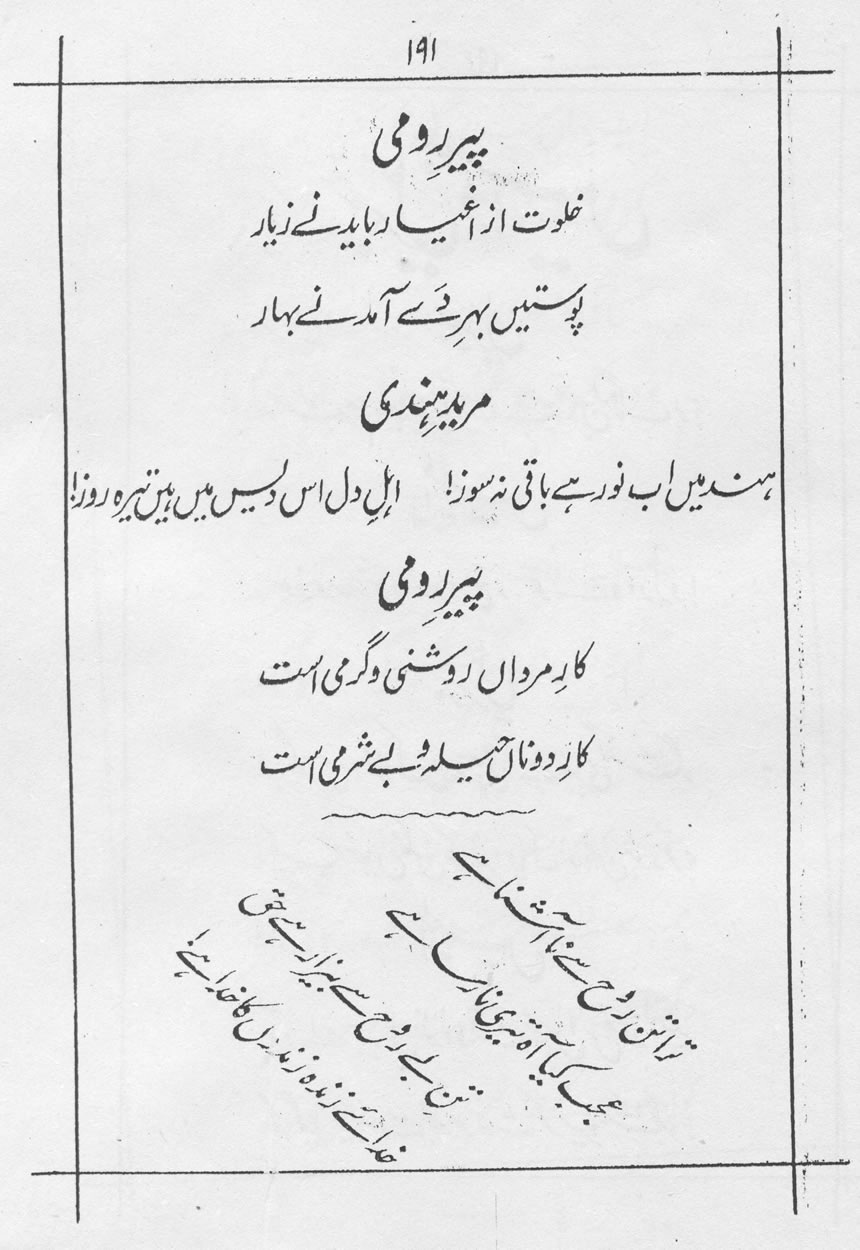 ۱۹۱
پیرِ رومی
خلوت از اغیار باید نے ز یار
پوستیں بہرِ دَے آمد نے بہار
مریدِ ہندی
ہند میں اب نور ہے باقی نہ سوز! اہلِ دل اس دیس میں ہیں تیرہ روز!
پیرِ رومی
کارِ مرداں روشنی و گرمی است
کارِ دوناں حیلہ و بے شرمی است
ترا تن روح سے نا آشنا ہے
عجب کیا آہ تیری نارسا ہے
تنِ بے روح سے بیزار ہے حق
خدائے زندہ زندوں کا خدا ہے!